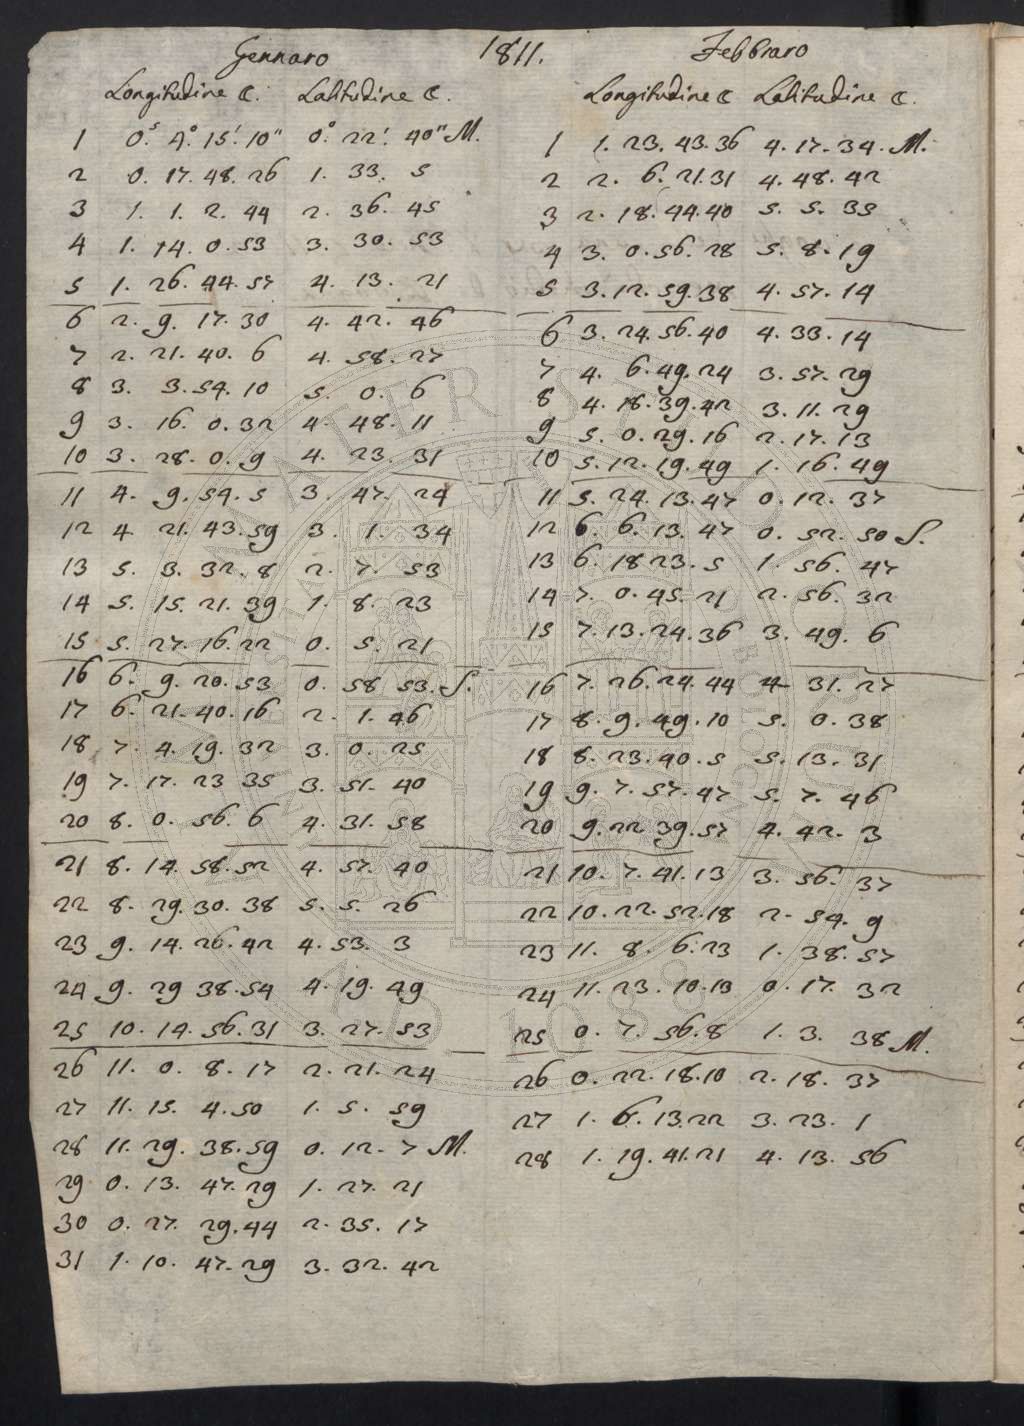 1811.
Gennaro
Longitudine ☾. Latitudine ☾.
1 0.ˢ 4.° 15.' 10" 0.° 22.' 40" M.
2 0. 17. 48. 26 1. 33. 5
3 1. 1. 2. 44 2. 36. 45
4 1. 14. 0. 53 3. 30. 53
5 1. 26. 44. 57 4. 13. 21
6 2. 9. 17. 30 4. 42. 46
7 2. 21. 40. 6 4. 58. 27
8 3. 3. 54. 10 5. 0. 6
9 3. 16. 0. 32 4. 48. 11
10 3. 28. 0. 9 4. 23. 31
11 4. 9. 54. 5 3. 47. 24
12 4 21. 43. 59 3. 1. 34
13 5. 3. 32. 8 2. 7. 53
14 5. 15. 21. 39 1. 8. 23
15 5. 27. 16. 22 0. 5. 21
16 6. 9. 20. 53 0. 58 53. S.
17 6. 21. 40. 16 2. 1. 46
18 7. 4. 19. 32 3. 0. 25
19 7. 17. 23 35 3. 51. 40
20 8. 0. 56. 6 4. 31. 58
21 8. 14. 58. 52 4. 57. 40
22 8. 29. 30. 38 5. 5. 26
23 9. 14. 26. 42 4. 53. 3
24 9. 29 38. 54 4. 19. 49
25 10. 14. 56. 31 3. 27. 53
26 11. 0. 8. 17 2. 21. 24
27 11. 15. 4. 50 1. 5. 59
28 11. 29. 38. 59 0. 12. 7 M.
29 0. 13. 47. 29 1. 27. 21
30 0. 27. 29. 44 2. 35. 17
31 1. 10. 47. 29 3. 32. 42
Febbraro
Longitudine ☾ Latitudine ☾.
1 1. 23. 43. 36 4. 17. 34. M.
2 2. 6. 21. 31 4. 48. 42
3 2. 18. 44. 40 5. 5. 35
4 3. 0. 56. 28 5. 8. 19
5 3. 12. 59. 38 4. 57. 14
6 3. 24. 56. 40 4. 33. 14
7 4. 6. 49. 24 3. 57. 29
8 4. 18. 39. 42 3. 11. 29
9 5. 0. 29. 16 2. 17. 13
10 5. 12. 19. 49 1. 16. 49
11 5. 24. 13. 47 0. 12. 37
12 6. 6. 13. 47 0. 52. 50 S.
13 6. 18 23. 5 1. 56. 47
14 7. 0. 45. 21 2. 56. 32
15 7. 13. 24. 36 3. 49. 6
16 7. 26. 24. 44 4 31. 27
17 8. 9. 49. 10 5. 0. 38
18 8. 23. 40. 5 5. 13. 31
19 9. 7. 57. 47 5. 7. 46
20 9. 22 39. 57 4. 42. 3
21 10. 7. 41. 13 3. 56. 37
22 10. 22. 52. 18 2. 54. 9
23 11. 8. 6. 23 1. 38. 57
24 11. 23. 10. 13 0. 17. 32
25 0. 7. 56. 8 1. 3. 38 M.
26 0. 22. 18. 10 2. 18. 37
27 1. 6. 13. 22 3. 23. 1
28 1. 19. 41. 21 4. 13. 56
ALMA MATER STUDIORUM
A.D. 1088